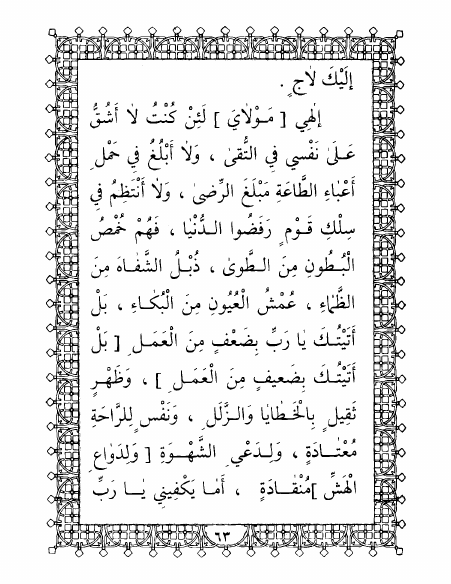 إِلَيْكَ لاَجٍ .
إِلٰهِي [ مَوْلاَيَ ] لَئِنْ كُنْتُ لاَ أَشُقُّ
عَلىٰ نَفْسي فِي التُّقىٰ ، وَلاَ أَبْلُغُ في حَمْلِ
أَعْبَاءِ الطَّاعَةِ مَبْلَغَ الرِّضىٰ ، وَلاَ أَنْتَظِمُ في
سِلْكِ قَوْمٍ رَفَضُوا الدُّنْيا ، فَهُمْ خُمْصُ
الْبُطُونِ مِنَ الطَّوىٰ ، ذُبْلُ الشَّفاهِ مِنَ
الظَّمَاءِ ، عُمْشُ الْعُيُونِ مِنَ الْبُكَاءِ ، بَلْ
أَتَيْتُكَ يا رَبِّ بِضَعْفٍ مِنَ الْعَمَلِ [ بَلْ
أَتَيْتُكَ بِضَعيفٍ مِنَ الْعَمَلِ ] ، وَظَهْرٍ
ثَقِيلٍ بِالْخَطايا وَالزَّلَلِ ، وَنَفْسٍ لِلرَّاحَةِ
مُعْتادَةٍ ، وَلِدَعْيِ الشَّهْوَةِ [ وَلِدَوَاعِ
الْهَشِّ ]مُنْقادَةٍ ، أَما يَكْفِيني يا رَبِّ
٦٣